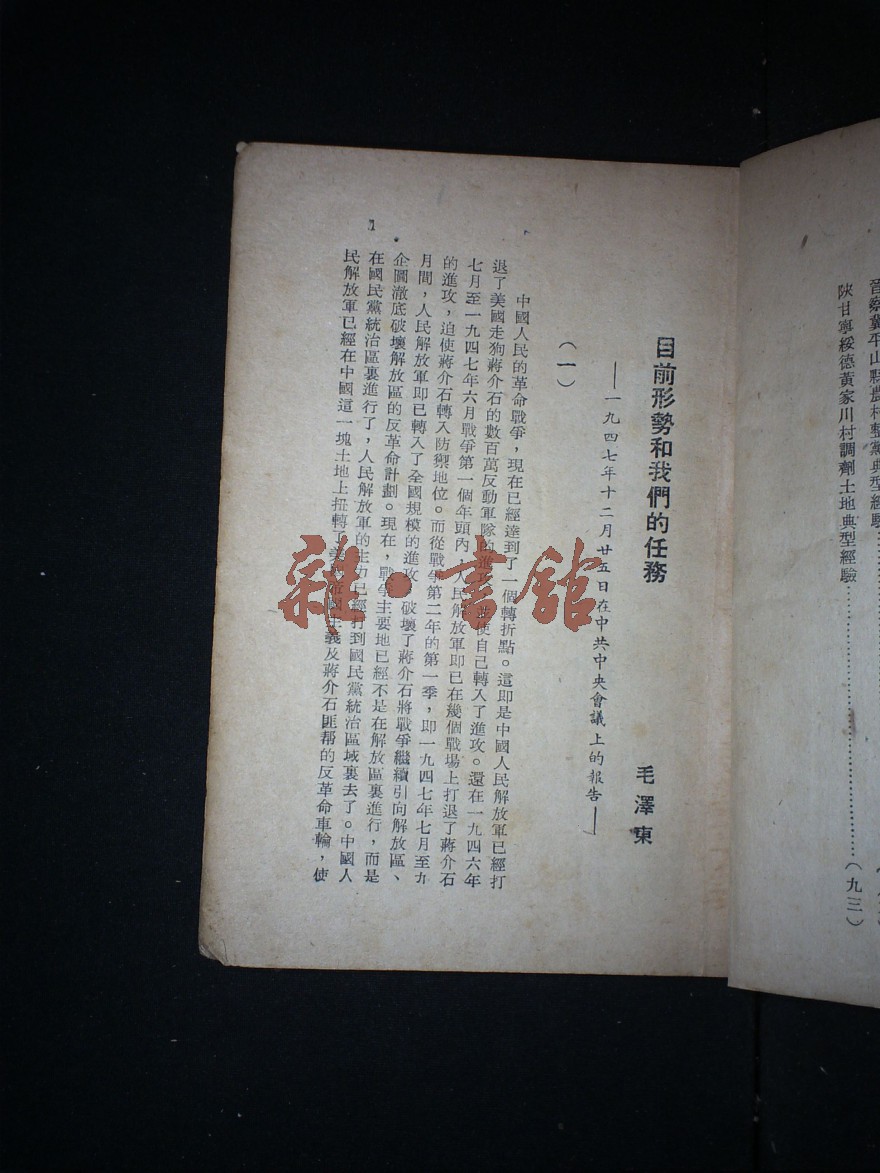 晉察冀平山縣農村整黨典型經驗
陝甘寧綏德黃家川村調劑土地典型經驗……………………（九三）
目前形勢和我們的任務
毛澤東
——一九四七年十二月廿五日在中共中央會議上的報告——
（一）
中國人民的革命戰爭，現在已經達到了一個轉折點。這即是中國人民解放軍已經打
退了美國走狗蔣介石的數百萬反動軍隊的進攻，並使自己轉入了進攻。還在一九四六年
七月至一九四七年六月戰爭第一個年頭內，人民解放軍即已在幾個戰場上打退了蔣介石
的進攻，迫使蔣介石轉入防禦地位。而從戰爭第二年的第一季，即一九四七年七月至九
月間，人民解放軍即已轉入了全國規模的進攻，破壞了蔣介石將戰爭繼續引向解放區、
企圖澈底破壞解放區的反革命計劃。現在，戰爭主要地已經不是在解放區裏進行，而是
在國民黨統治區裏進行了，人民解放軍的主力已經打到國民黨統治區域裏去了。中國人
民解放軍已經在中國這一塊土地上扭轉了美國帝國主義及蔣介石匪幫的反革命車輪，使
1
雜·書館